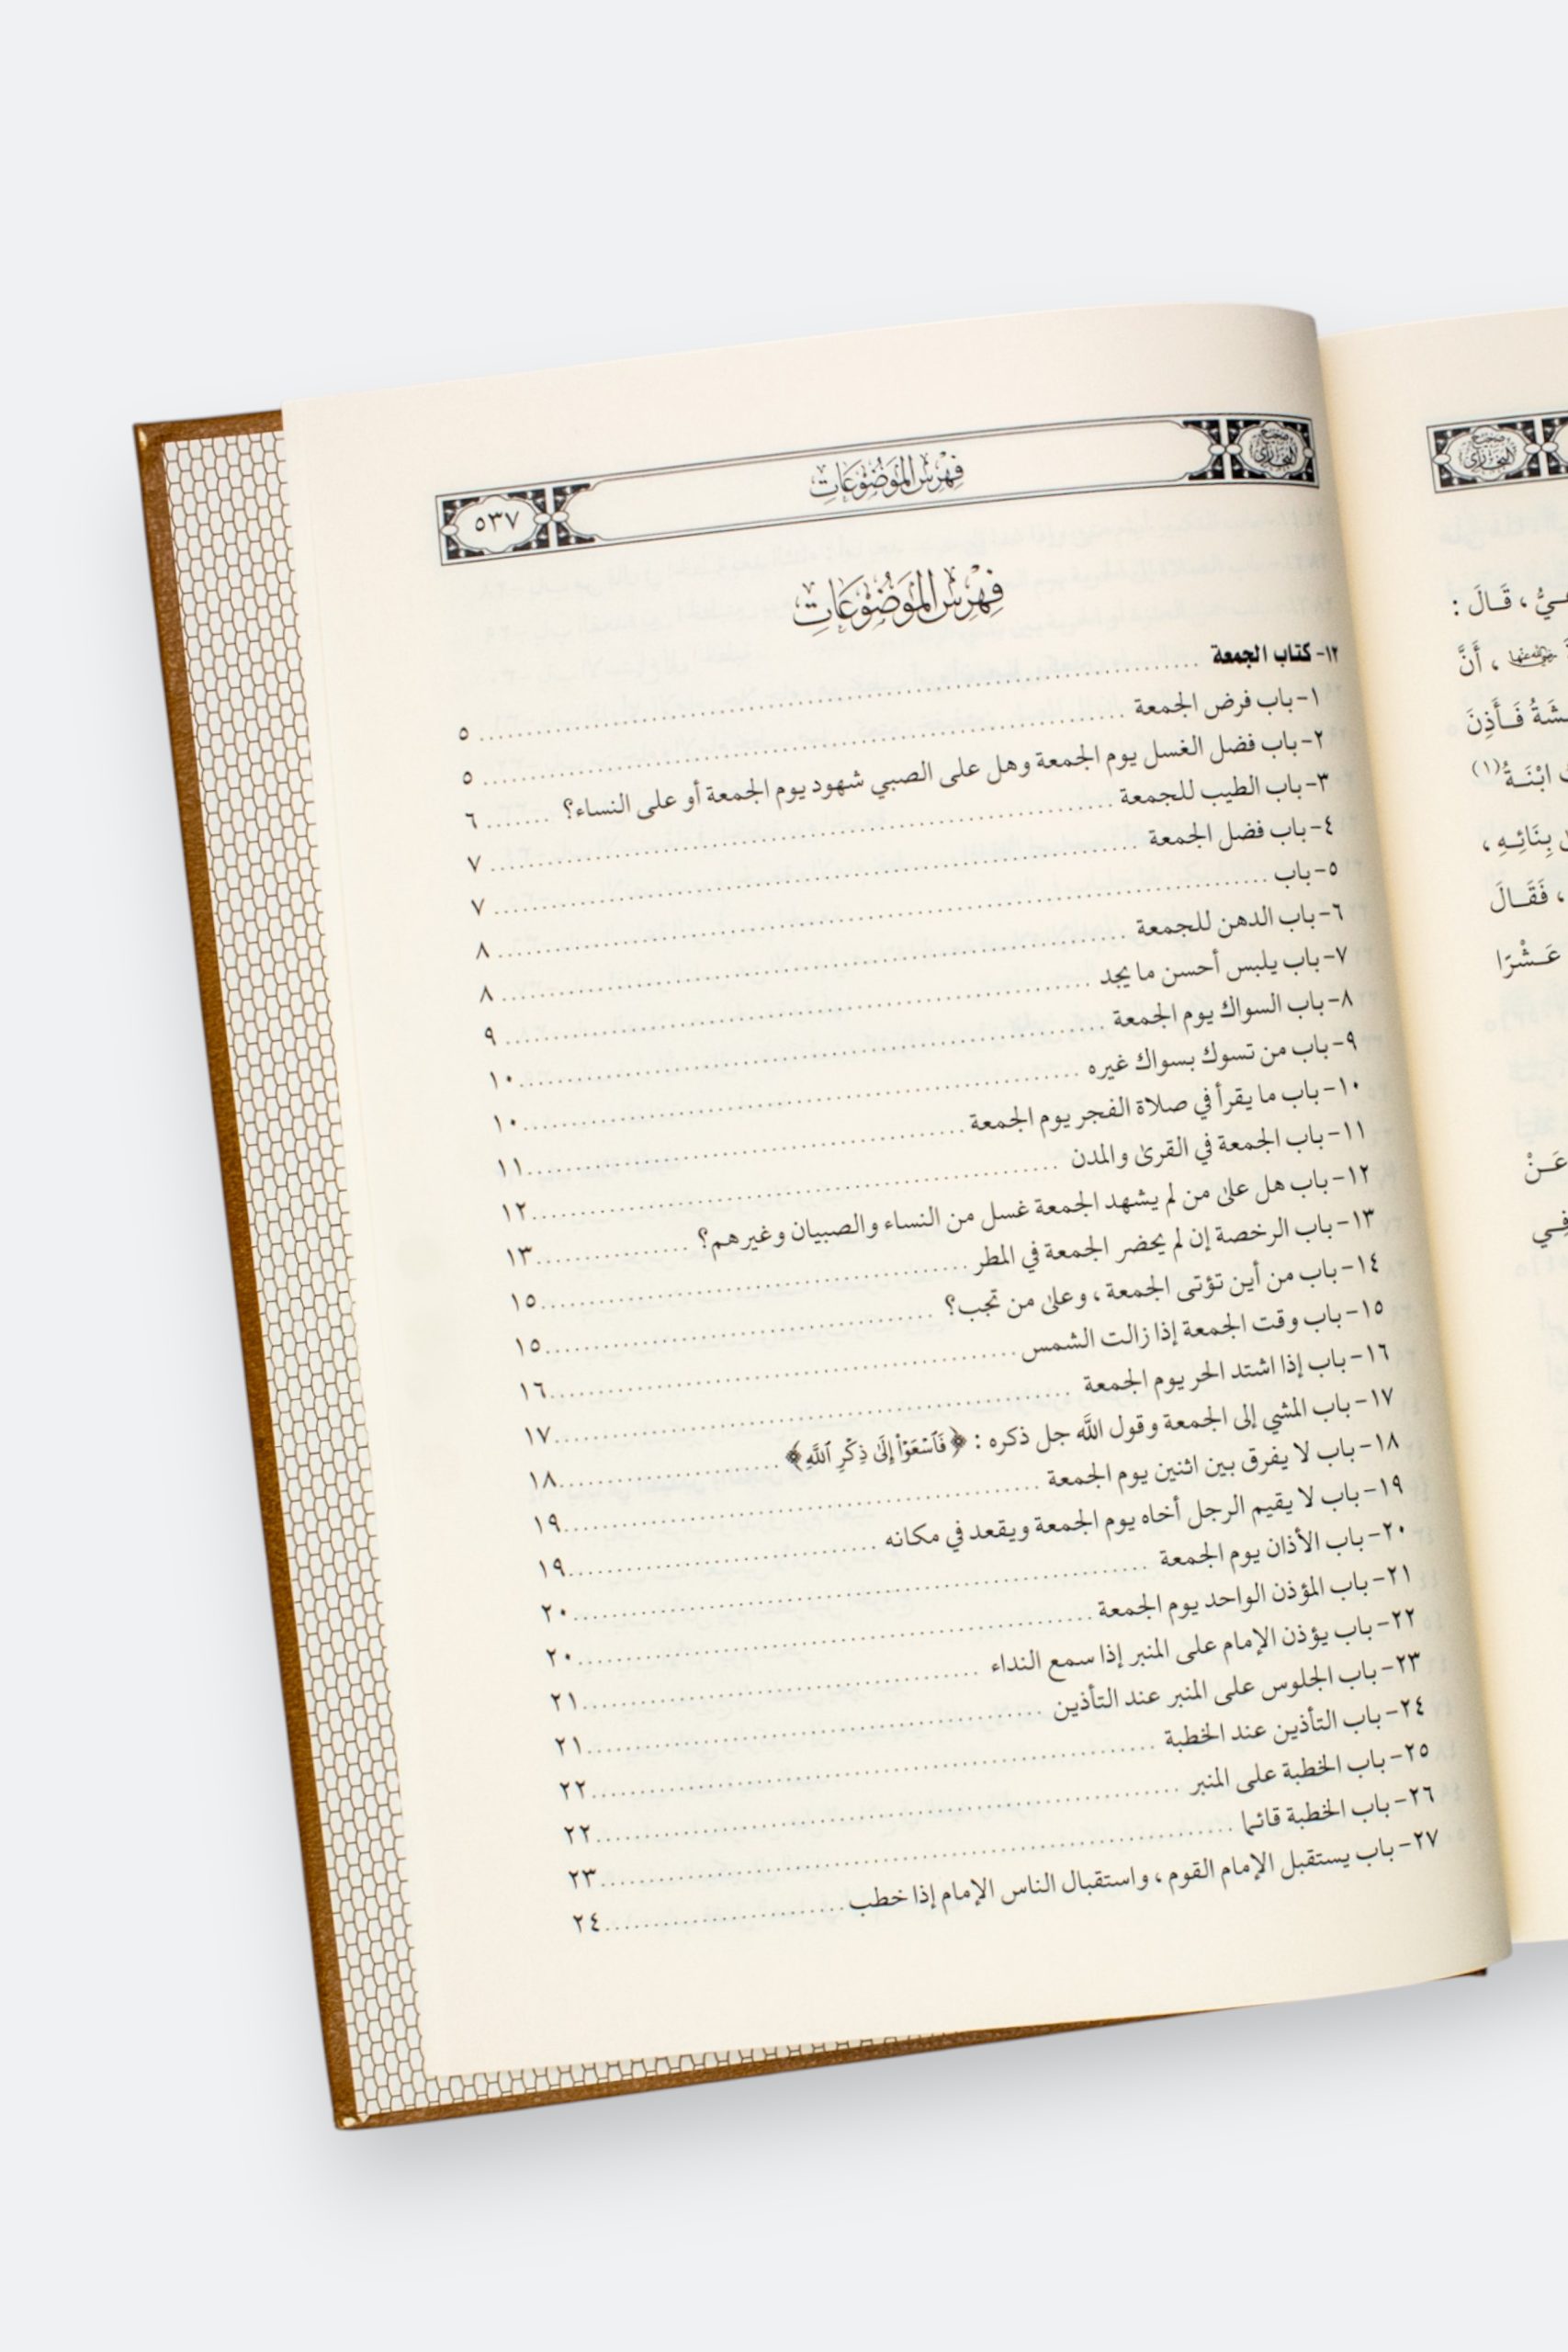 صحيح البخاري فهرس الموضوعات ٥٣٧
فهرس الموضوعات
١٢- كتاب الجمعة ........ ٥
١- باب فرض الجمعة ........ ٥
٢- باب فضل الغسل يوم الجمعة وهل على الصبي شهود يوم الجمعة أو على النساء؟ ........ ٦
٣- باب الطيب للجمعة ........ ٧
٤- باب فضل الجمعة ........ ٧
٥- باب ........ ٨
٦- باب الدهن للجمعة ........ ٨
٧- باب يلبس أحسن ما يجد ........ ٩
٨- باب السواك يوم الجمعة ........ ١٠
٩- باب من تسوك بسواك غيره ........ ١٠
١٠- باب ما يقرأ في صلاة الفجر يوم الجمعة ........ ١١
١١- باب الجمعة في القرىٰ والمدن ........ ١٢
١٢- باب هل علىٰ من لم يشهد الجمعة غسل من النساء والصبيان وغيرهم؟ ........ ١٣
١٣- باب الرخصة إن لم يحضر الجمعة في المطر ........ ١٥
١٤- باب من أين تؤتى الجمعة، وعلىٰ من تجب؟ ........ ١٥
١٥- باب وقت الجمعة إذا زالت الشمس ........ ١٦
١٦- باب إذا اشتد الحر يوم الجمعة ........ ١٧
١٧- باب المشي إلى الجمعة وقول اللَّه جل ذكره: ﴿فَٱسْعَوْا۟ إِلَىٰ ذِكْرِ ٱللَّهِ﴾ ........ ١٨
١٨- باب لا يفرق بين اثنين يوم الجمعة ........ ١٩
١٩- باب لا يقيم الرجل أخاه يوم الجمعة ويقعد في مكانه ........ ١٩
٢٠- باب الأذان يوم الجمعة ........ ٢٠
٢١- باب المؤذن الواحد يوم الجمعة ........ ٢٠
٢٢- باب يؤذن الإمام على المنبر إذا سمع النداء ........ ٢١
٢٣- باب الجلوس على المنبر عند التأذين ........ ٢١
٢٤- باب التأذين عند الخطبة ........ ٢٢
٢٥- باب الخطبة على المنبر ........ ٢٢
٢٦- باب الخطبة قائما ........ ٢٣
٢٧- باب يستقبل الإمام القوم، واستقبال الناس الإمام إذا خطب ........ ٢٤
صحيح البخاري
، قَالَ :
، أَنَّ
فَأَذِنَ
ابْنَةُ(١)
بِنَائِهِ ،
، فَقَالَ
عَشْرًا
عَنْ